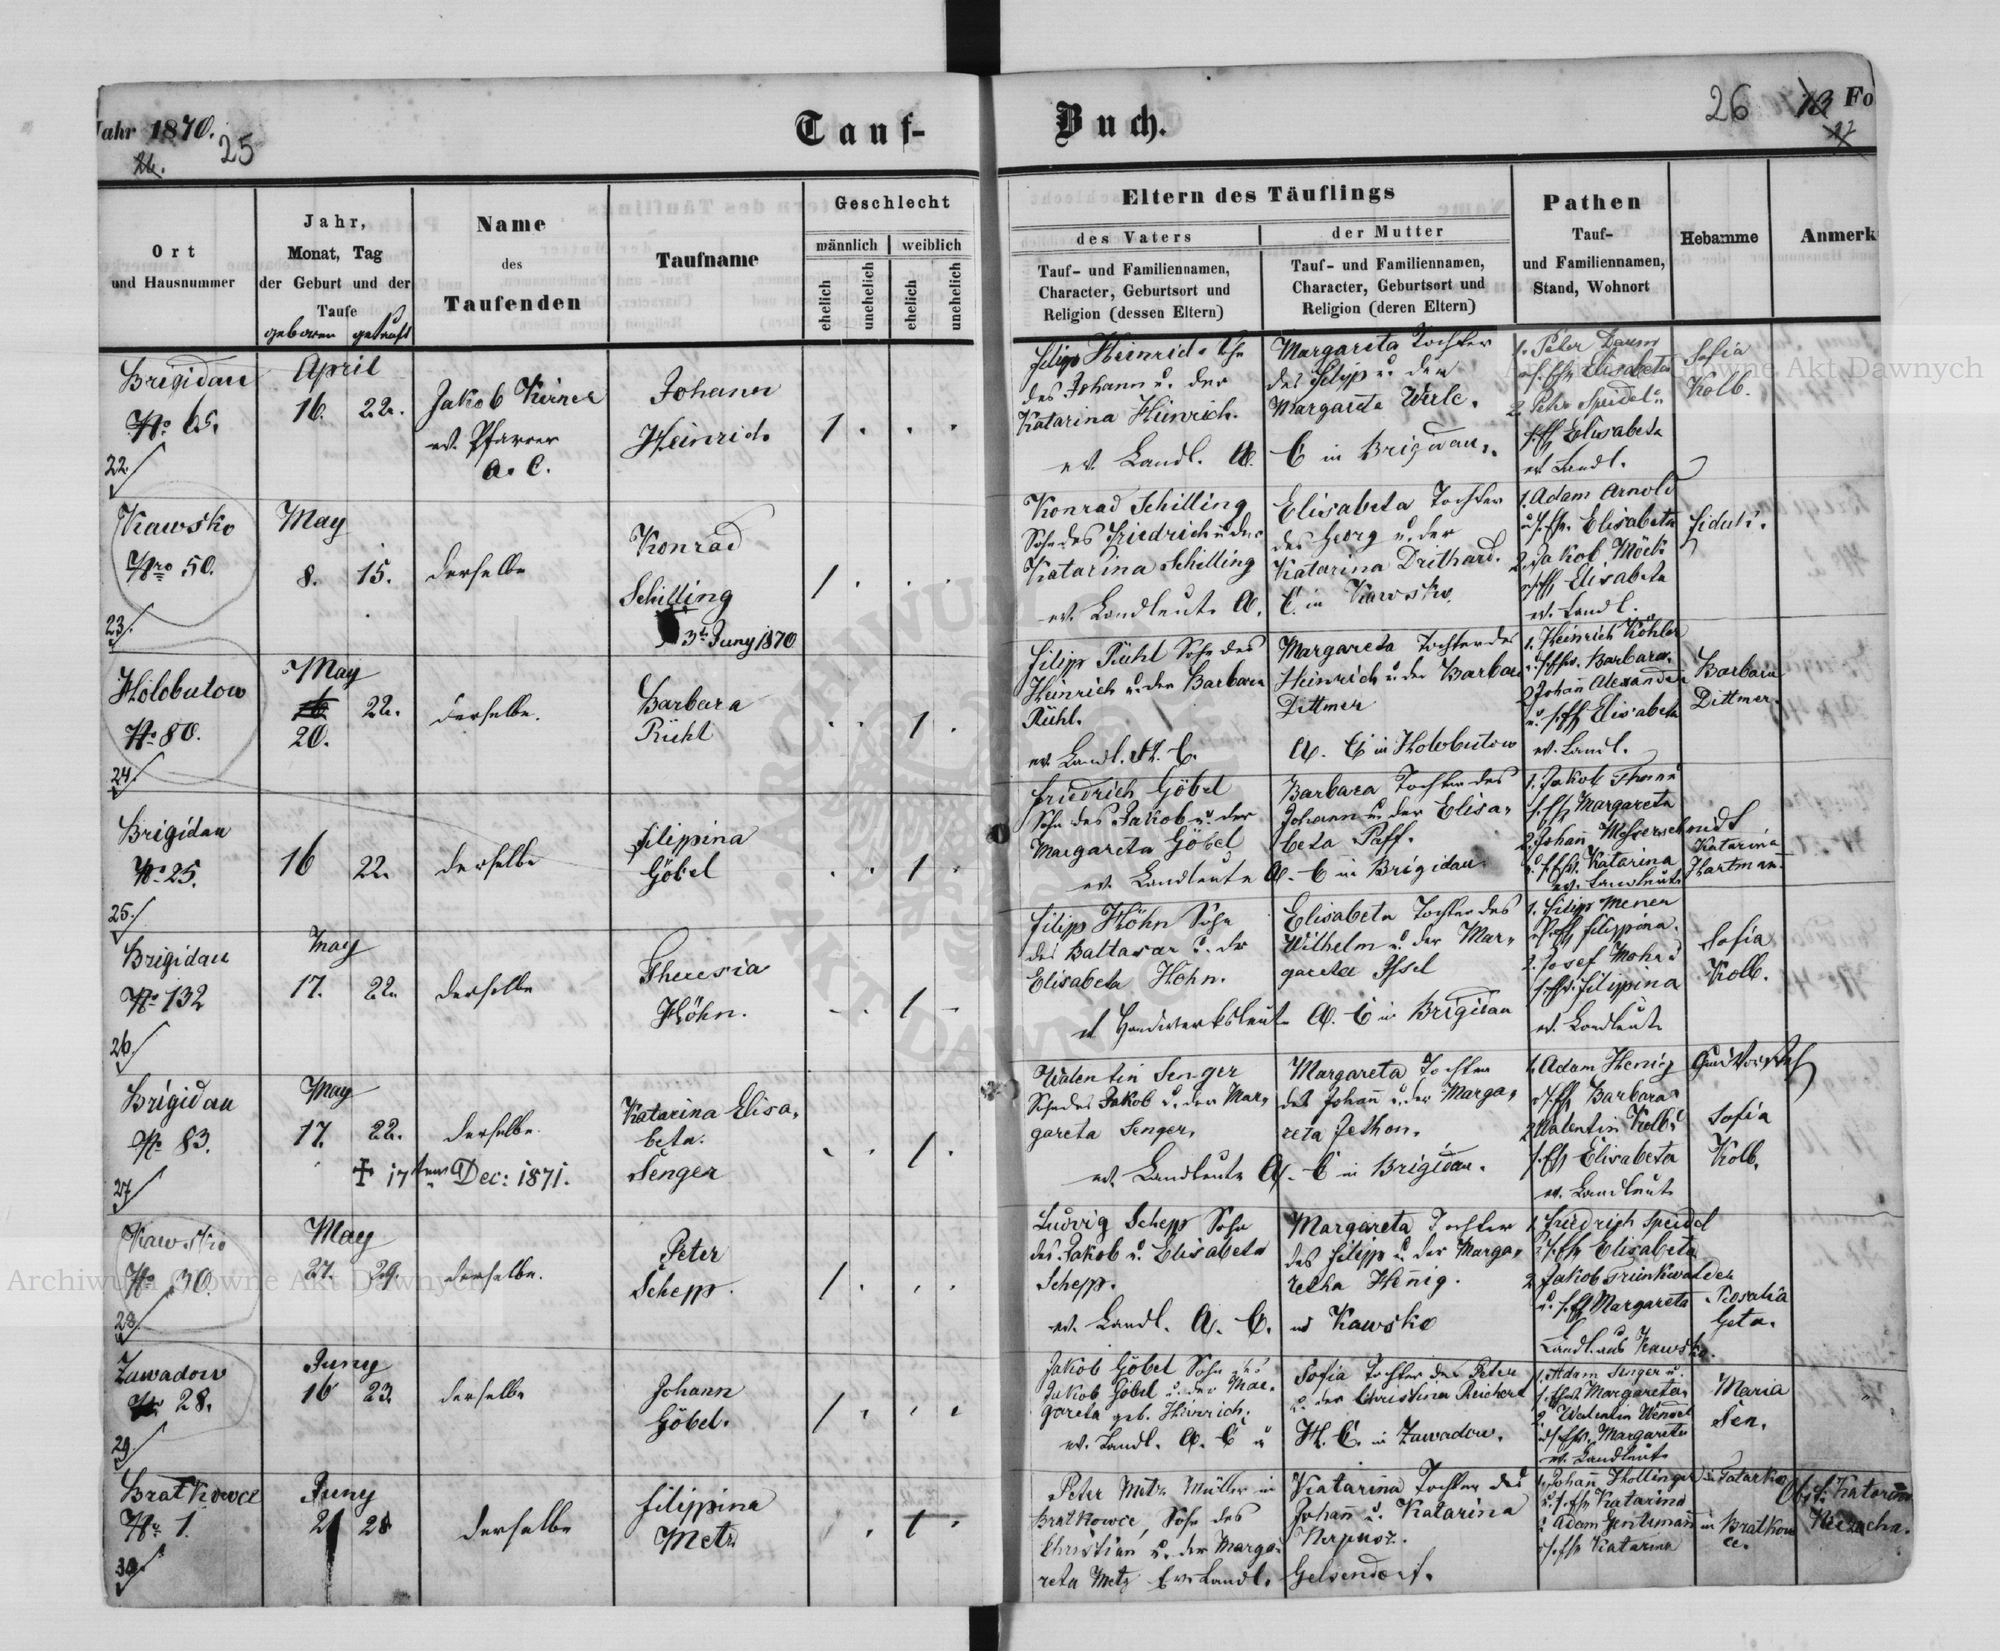 Jahr 1870.
26.
25
Tauf-
Buch.
26
13
Fo
27
Ort
und Hausnummer
Jahr,
Monat, Tag
der Geburt und der
Taufe
geboren getauft
Name
des
Taufenden
Taufname
Geschlecht
männlich weiblich
ehelich unehelich ehelich unehelich
Eltern des Täuflings
des Vaters
Tauf- und Familiennamen,
Character, Geburtsort und
Religion (dessen Eltern)
der Mutter
Tauf- und Familiennamen,
Character, Geburtsort und
Religion (deren Eltern)
Pathen
Tauf-
und Familiennamen,
Stand, Wohnort
Hebamme
Anmerk
Brigidau
No 65.
22.
April
16. 22.
Jakob Kirner
ev. Pfarrer
A. C.
Johann
Heinrich
1 . . .
Filipp Heinrich
des Johann u. der
Katarina Heinrich.
ev. Landl. A.
Margareta Tochter
des Filipp u. der
Margareta Werle.
C in Brigidau.
1. Peter Daum
u. s. Ehfr Elisabeta
2. Peter Speidel u.
s. Ehfr Elisabeta
ev. Landl.
Sofia
Kolb.
Kawsko
Nro 50.
23.
May
8. 15.
derselbe
Konrad
Schilling
3t. Juny 1870
1 . . .
Konrad Schilling
Sohn des Friedrich u der
Katarina Schilling
ev. Landleute A.
Elisabeta Tochter
des Georg u. der
Katarina Drithard.
C. in Kawsko.
1. Adam Arnold
u s. Ehfr. Elisabeta
2. Jakob Möck
u s. Ehfr Elisabeta
ev. Landl.
Holobutow
No 80.
24.
May
22.
20.
derselbe.
Barbara
Rühl
. . 1 .
Filipp Rühl Sohn des
Heinrich u. der Barbara
Rühl.
ev. Landl. A. C.
Margareta Tochter des
Heinrich u. der Barbara
Dittmer
A. C in Holobutow
1. Heinrich Köhler
u. s. Ehfr. Barbara.
2 Johañ Alexander
u. s. Ehfr Elisabeta
ev. Landl.
Barbara
Dittmer.
Brigidau
No 25.
25.
16 22.
derselbe
Filippina
Göbel
. . 1 .
Friedrich Göbel
Sohn des Jakob u. der
Margareta Göbel
ev. Landleute A.
Barbara Tochter des
Johann u. der Elisa-
beta Paff.
C in Brigidau
1. Jakob
s. Ehfr Margareta
2. Johañ Messerschmidt
u. s. Ehfr. Katarina
ev. Landleute
Katarina
Hartman.
Brigidau
No 132
26.
May
17. 22.
derselbe
Theresia
Höhn.
. . 1 .
Filipp Höhn Sohn
des Baltasar u. der
Elisabeta Höhn.
ev Handwerksleute
Elisabeta Tochter des
Wilhelm u. der Mar-
gareta Issel
A. C in Brigidau
1. Filipp Menen
u s. Ehfr Filippina.
2. Josef Mohr u
s. Ehfr. Filippina
ev. Landleute
Sofia
Kolb.
Brigidau
No 83.
27
May
17. 22.
✝ 17ten Dec: 1871.
derselbe.
Katarina Elisa-
beta.
Senger
. . 1 .
Valentin Senger
Sohn des Jakob u. der Mar-
gareta Senger.
ev. Landleute A.
Margareta Tochter
des Johañ u. der Marga-
reta Jethon.
C in Brigidau.
1. Adam Henig
u s. Ehfr Barbara
2. Valentin Kolb u
s. Ehfr Elisabeta
ev. Landleute
Sofia
Kolb.
Kawsko
No 30.
28.
May
27. 29.
derselbe.
Peter
Schepp.
1 . . .
Ludwig Schepp Sohn
des Jakob u. Elisabeta
Schepp.
ev. Landl. A. C.
Margareta Tochter
des Filipp u. der Marga-
retha Heñig.
in Kawsko
1. Friedrich Speidel
u. s. Ehfr Elisabeta
2. Jakob Trunkwalder
u. s. Ehfr Margareta
Landl. aus Kawsko.
Rosalia
Geta.
Zawadow
No 28.
29.
Juny
16 23
derselbe
Johann
Göbel.
1 . . .
Jakob Göbel Sohn des
Jakob Göbel u. der Mar-
gareta geb. Heinrich.
ev. Landl. A. C u
Sofia Tochter des Peter
u. der Christina Reichert
H. C. in Zawadow.
1. Adam Senger u.
s. Ehfr Margareta
2. Valentin Wendel
u s. Ehfr. Margareta
ev. Landleute
Maria
Sen.
Bratkowce
No 1.
30.
Juny
21 28
derselbe
Filippina
Metz
. . 1 .
Peter Metz Müller in
Bratkowce, Sohn des
Christian u. der Marga-
reta Metz Ev. Landl.
Katarina Tochter des
Johañ u. Katarina
Kepusz.
Gelsendorf.
1. Johañ Hollinger
u. s. Ehfr Katarina
2 Adam Gentzmañ in Bratkow
u s. Ehfr Katarina
ce.
Katarina
Archiwum Główne Akt Dawnych
Archiwum Główne Akt Dawnych